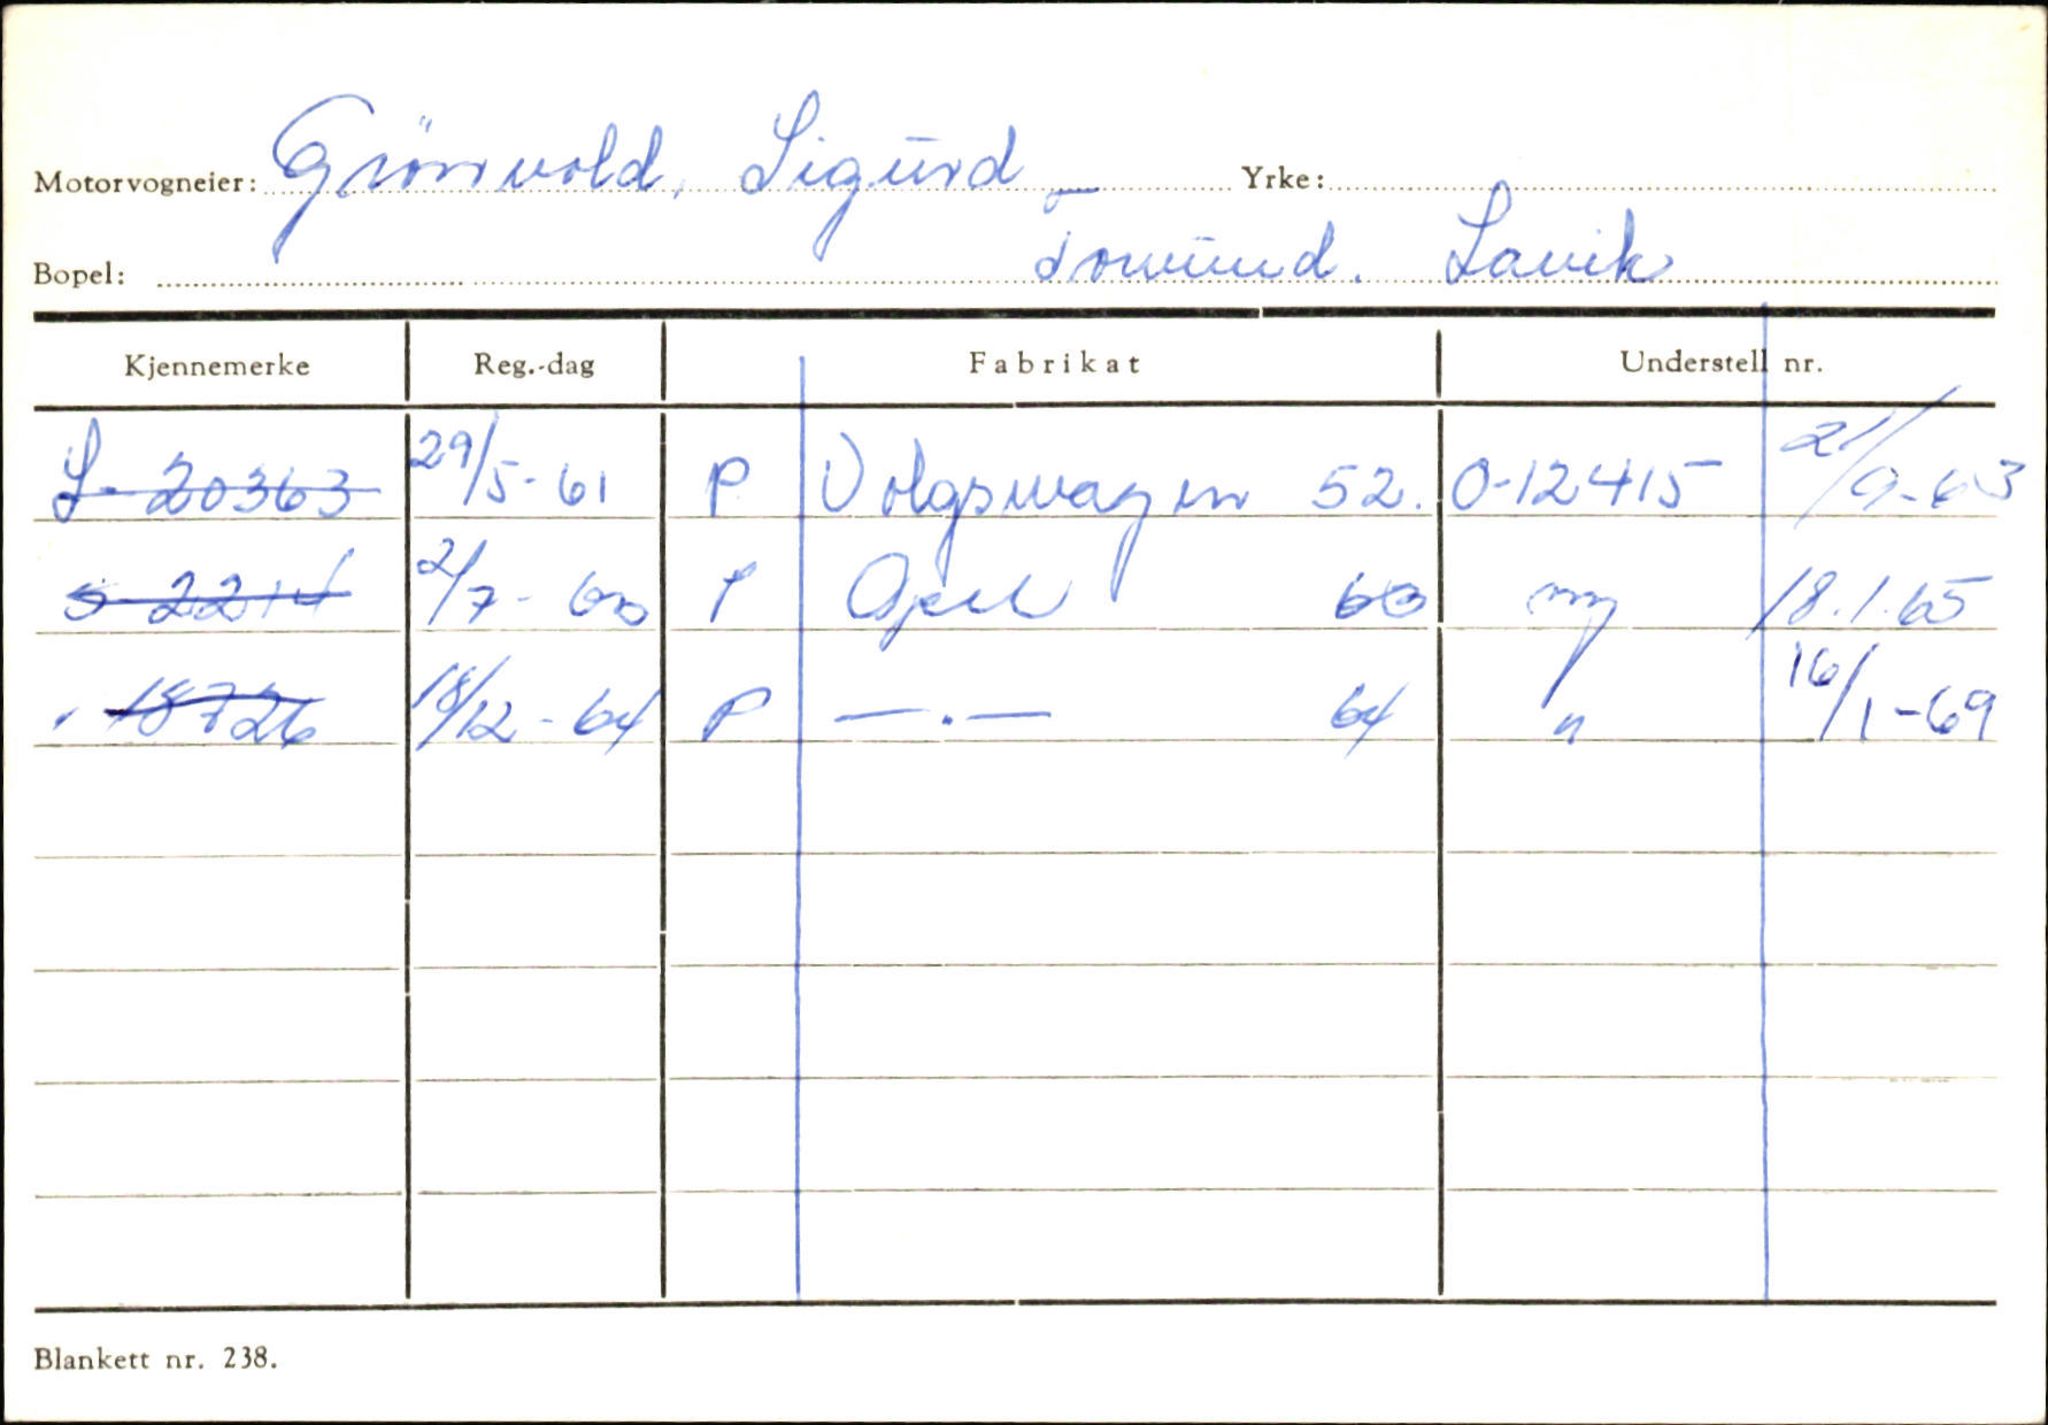 Motorvogneier: Grönvold, Sigurd Yrke:
Bopel: Torvund. Lavik
Kjennemerke Reg.-dag Fabrikat Understell nr.
S-20363 29/5-61 P Volgswagen 52. 0-12415 21/9-63
S-2214 2/7-63 P Opel 63 ny 18.1.65
" 18726 18/12-64 P —.— 64 " 16/1-69
Blankett nr. 238.